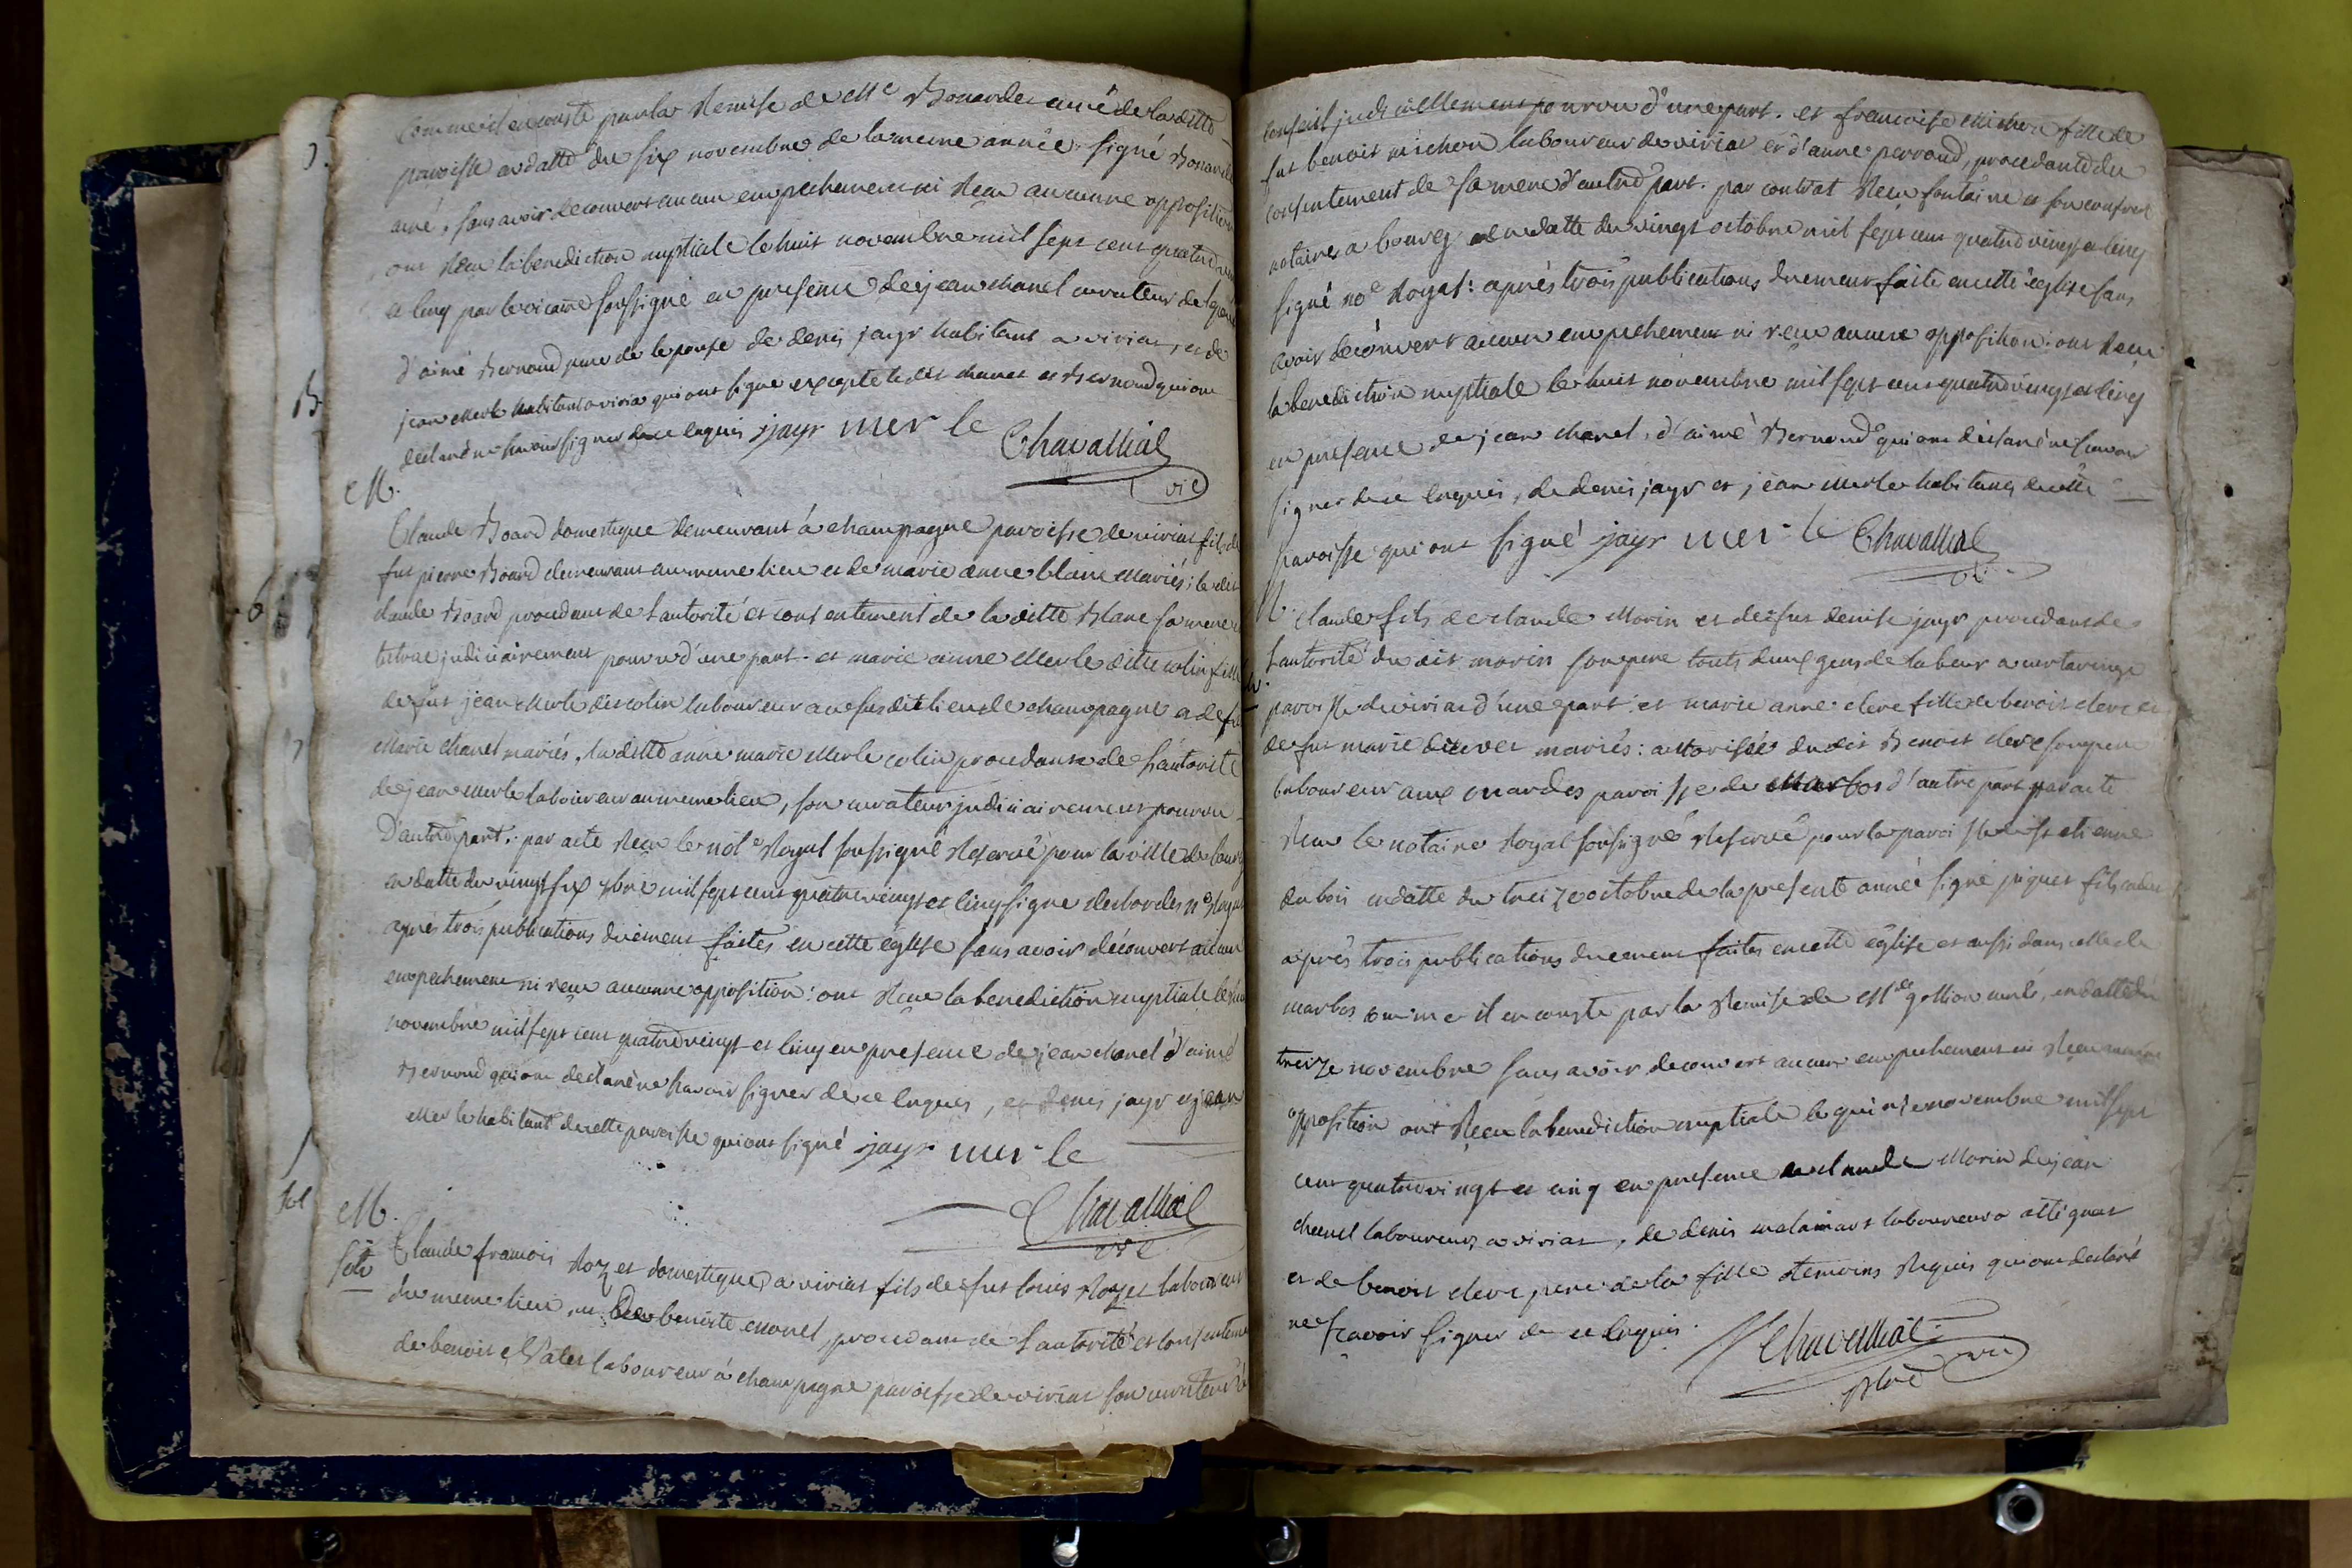 comme il en conste par la Remise de Mre Bonardet curé de la ditte
paroisse en datte du six novembre de la meme année signé Bonardet
curé, sans avoir decouvert aucun empechement ni Recu aucunne opposition
ont Recu la benediction nuptiale le huit novembre mil sept cent quatre vingt
et cinq par le vicaire soussigné en presence de jean chanel curateur de
d'aimé Bernoud pere de lepouse de denis jayr habitant a viriat, et de
jean Merle habitant a viriat qui ont signé excepté les dits chanel et Bernoud qui ont
declaré ne scavoir signer de ce Enquis jayr mer le Chavallial
vic
M.
Claude Board domestique demeurant à champagne paroisse de viriat fils de
fut pierre Board demeurant au meme lieu et de marie anne blanc Mariés; le dit
claude Board procedant de l'autorité et consentement de la ditte Blanc sa mere
tutrice judiciairement pourvu d'une part. et marie anne Merle ditte colin fille
de fut jean Merle dit colin laboureur au susdit lieu de champagne et de fut
Marie chanel mariés, la ditte anne marie Merle colin procedante de l'autorité
de jean Merle laboureur au meme lieu, son curateur judiciairement pourvu
D'autre part; par acte Recu le notre Royal soussigné Reservé pour la ville de bourg
en datte du vingt six 8bre mil sept cent quatre vingt et cinq signé desbordes nre Royal
après trois publications duement faites en cette église sans avoir découvert aucun
empechement ni recu aucunne opposition: ont Recu la benediction nuptiale le huit
novembre mil sept cent quatre vingt et cinq en presence de jean chanel d'aimé
Bernoud qui ont declaré ne scavoir signer de ce Enquis, et denis jayr et jean
Merle habitant de cette paroisse qui ont signé jayr mer le
Chavallial
vic
M.
Claude francois Rozet domestique a viriat fils de fut Rozet laboureur
du meme lieu, et de benoite Monet, procedant de l'autorité et consentement
de benoit laboureur à champagne paroisse de viriat son curateur
conseil judiciellement pourvu d'une part. et francoise michon fille de
fut benoit michon laboureur de viriat et d'anne perroud, procedante du
consentement de sa mere d'autre part. par contrat Recu fontaine et son confrere
notaires a bourg en datte du vingt octobre mil sept cent quatre vingt et cinq
signé nre Royal: après trois publications duement faite en cette église sans
avoir découvert aucun empechement ni recu aucune opposition: ont Recu
la benediction nuptiale le huit novembre mil sept cent quatre vingt et cinq
en presence de jean chanel, d'aimé Bernoud qui ont déclaré ne scavoir
signer de ce Enquis, de denis jayr et jean Merle habitants de cette
paroisse qui ont signé jayr mer le Chavallial
vic
M. claude fils de claude Morin et de fut denise jayr procedant de
l'autorité du dit morin son pere touts deux gens de labeur a curtaringe
paroisse de viriat d'une part; et marie anne clerc fille de benoit clerc et
de fut marie mariés: authorisée du dit Benoit clerc son pere
laboureur aux paroisse de Marbos d'autre part par acte
Recu le notaire Royal soussigné Reservé pour la paroisse de st etienne
du bois en datte du treize octobre de la presente année signé piquet fils cadet
après trois publications duement faites en cette église et aussi dans celle de
marbos comme il en conste par la Remise de Mre gollion curé, en datte du
treize novembre sans avoir decouvert aucun empechement ni Recu aucune
opposition ont Recu la benediction nuptiale le quinze novembre mil sept
cent quatre vingt et cinq en presence de claude Morin de jean
chanel laboureurs a viriat, de denis laboureur a attignat
et de benoit clerc pere de la fille temoins Requis qui ont declaré
ne scavoir signer de ce Enquis. Chavallial
vic